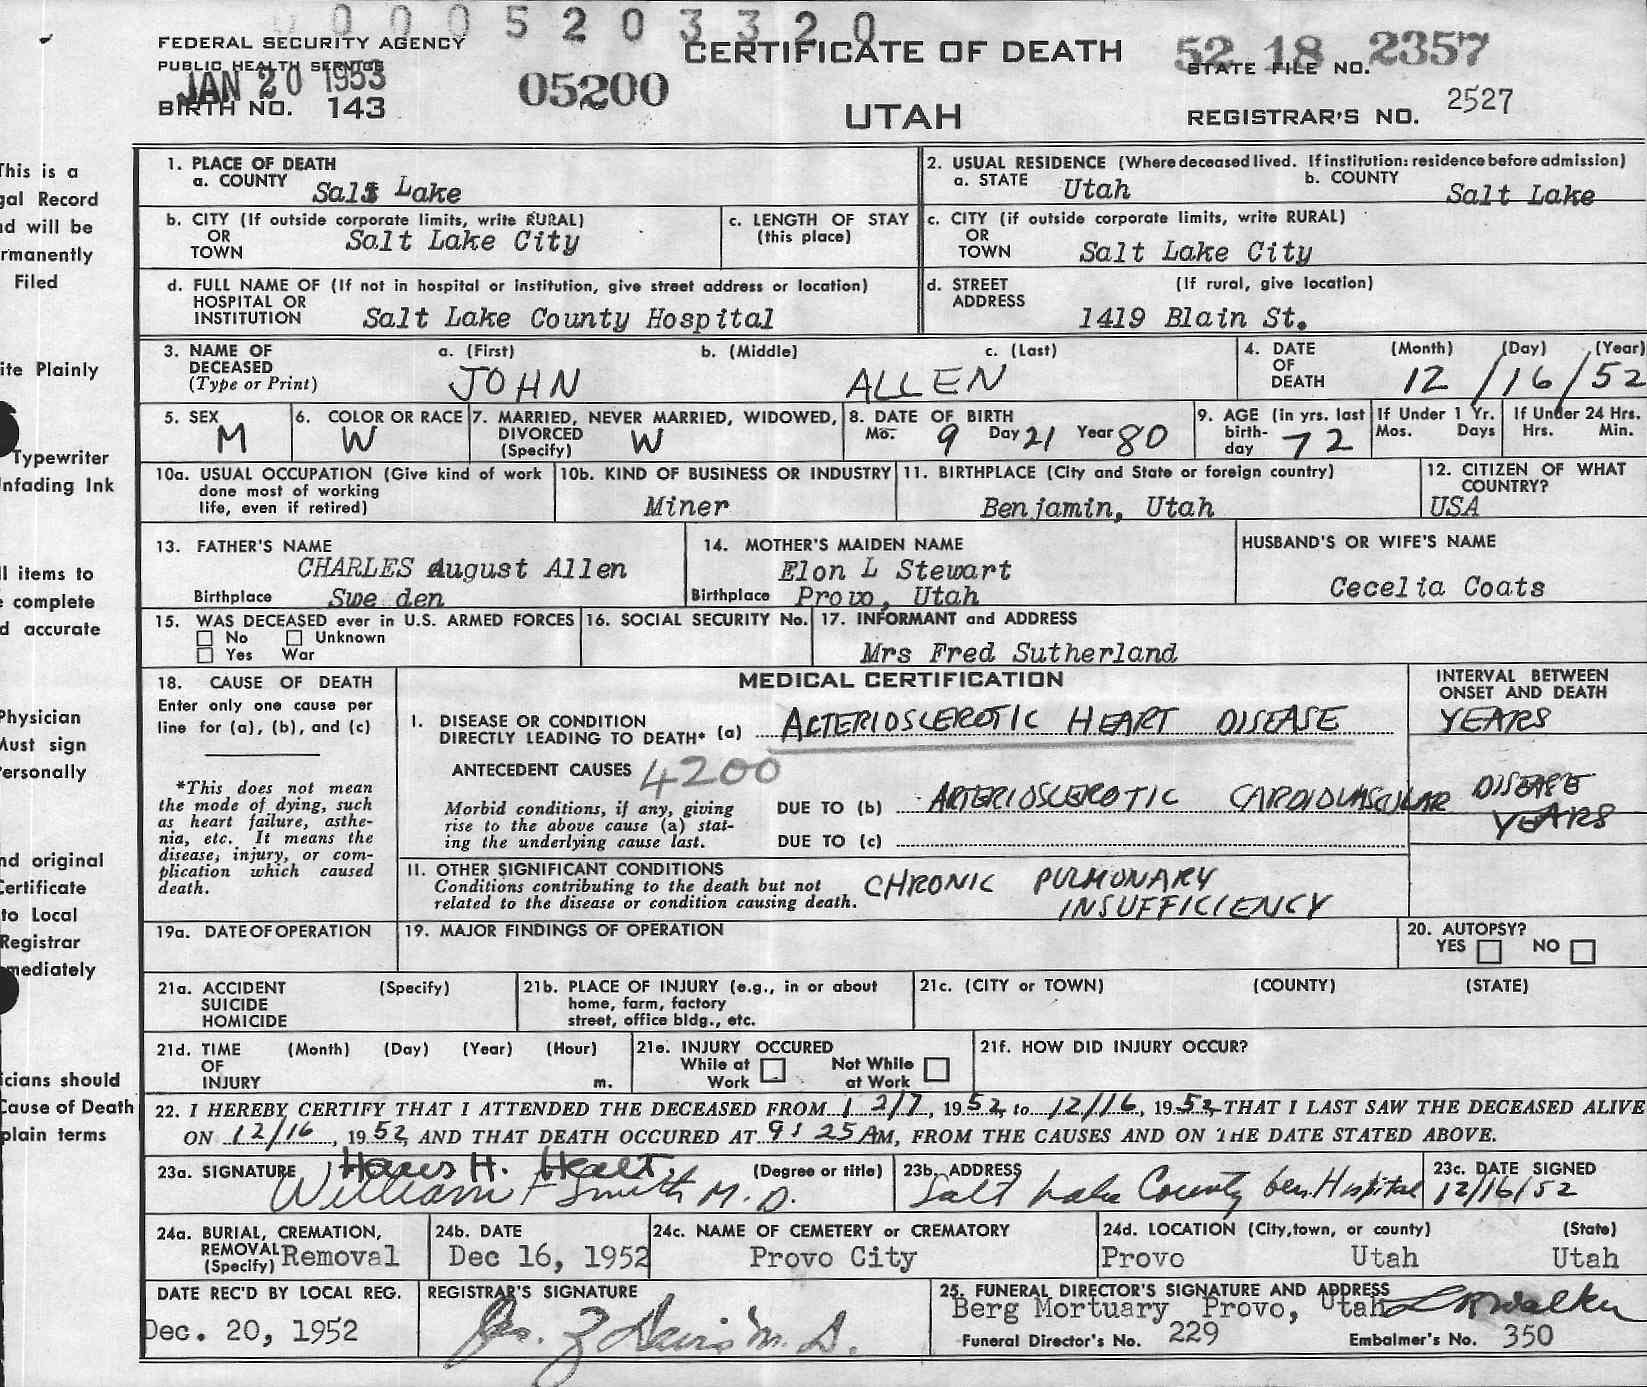 0 0 0 5 2 0 3 3 2 0
FEDERAL SECURITY AGENCY
PUBLIC HEALTH SERVICE
JAN 20 1953
BIRTH NO. 143
05200
CERTIFICATE OF DEATH
UTAH
52 18 2357
STATE FILE NO.
REGISTRAR'S NO. 2527
This is a
gal Record
nd will be
rmanently
Filed
ite Plainly
Typewriter
nfading Ink
ll items to
e complete
d accurate
Physician
Must sign
ersonally
nd original
Certificate
to Local
Registrar
mediately
icians should
Cause of Death
plain terms
1. PLACE OF DEATH
a. COUNTY Salt Lake
2. USUAL RESIDENCE (Where deceased lived. If institution: residence before admission)
a. STATE Utah b. COUNTY Salt Lake
b. CITY (If outside corporate limits, write RURAL)
OR
TOWN Salt Lake City
c. LENGTH OF STAY
(this place)
c. CITY (if outside corporate limits, write RURAL)
OR
TOWN Salt Lake City
d. FULL NAME OF (If not in hospital or institution, give street address or location)
HOSPITAL OR
INSTITUTION Salt Lake County Hospital
d. STREET (If rural, give location)
ADDRESS 1419 Blain St.
3. NAME OF a. (First) b. (Middle) c. (Last)
DECEASED
(Type or Print) JOHN ALLEN
4. DATE (Month) (Day) (Year)
OF
DEATH 12/16/52
5. SEX M
6. COLOR OR RACE W
7. MARRIED, NEVER MARRIED, WIDOWED,
DIVORCED
(Specify) W
8. DATE OF BIRTH
Mo. 9 Day 21 Year 80
9. AGE (in yrs. last
birth-
day 72
If Under 1 Yr.
Mos. Days
If Under 24 Hrs.
Hrs. Min.
10a. USUAL OCCUPATION (Give kind of work
done most of working
life, even if retired)
10b. KIND OF BUSINESS OR INDUSTRY
Miner
11. BIRTHPLACE (City and State or foreign country)
Benjamin, Utah
12. CITIZEN OF WHAT
COUNTRY?
USA
13. FATHER'S NAME
CHARLES August Allen
Birthplace Swe den
14. MOTHER'S MAIDEN NAME
Elon L Stewart
Birthplace Provo, Utah
HUSBAND'S OR WIFE'S NAME
Cecelia Coats
15. WAS DECEASED ever in U.S. ARMED FORCES
No Unknown
Yes War
16. SOCIAL SECURITY No.
17. INFORMANT and ADDRESS
Mrs Fred Sutherland
18. CAUSE OF DEATH
Enter only one cause per
line for (a), (b), and (c)
*This does not mean
the mode of dying, such
as heart failure, asthe-
nia, etc. It means the
disease, injury, or com-
plication which caused
death.
MEDICAL CERTIFICATION
INTERVAL BETWEEN
ONSET AND DEATH
I. DISEASE OR CONDITION
DIRECTLY LEADING TO DEATH* (a) ARTERIOSCLEROTIC HEART DISEASE YEARS
ANTECEDENT CAUSES 4200
Morbid conditions, if any, giving
rise to the above cause (a) stat-
ing the underlying cause last.
DUE TO (b) ARTERIOSCLEROTIC CARDIOVASCULAR DISEASE
YEARS
DUE TO (c)
II. OTHER SIGNIFICANT CONDITIONS
Conditions contributing to the death but not
related to the disease or condition causing death.
CHRONIC PULMONARY
INSUFFICIENCY
19a. DATE OF OPERATION
19. MAJOR FINDINGS OF OPERATION
20. AUTOPSY?
YES NO
21a. ACCIDENT (Specify)
SUICIDE
HOMICIDE
21b. PLACE OF INJURY (e.g., in or about
home, farm, factory
street, office bldg., etc.
21c. (CITY or TOWN) (COUNTY) (STATE)
21d. TIME (Month) (Day) (Year) (Hour)
OF
INJURY m.
21e. INJURY OCCURED
While at Not While
Work at Work
21f. HOW DID INJURY OCCUR?
22. I HEREBY CERTIFY THAT I ATTENDED THE DECEASED FROM 12/7, 1952, to 12/16, 1952, THAT I LAST SAW THE DECEASED ALIVE
ON 12/16, 1952, AND THAT DEATH OCCURED AT 9:25 AM, FROM THE CAUSES AND ON THE DATE STATED ABOVE.
23a. SIGNATURE (Degree or title)
William F Smith M.D.
23b. ADDRESS
Salt Lake County Gen. Hospital
23c. DATE SIGNED
12/16/52
24a. BURIAL, CREMATION,
REMOVAL
(Specify) Removal
24b. DATE
Dec 16, 1952
24c. NAME OF CEMETERY or CREMATORY
Provo City
24d. LOCATION (City, town, or county) (State)
Provo Utah Utah
DATE REC'D BY LOCAL REG.
Dec. 20, 1952
REGISTRAR'S SIGNATURE
M. D.
25. FUNERAL DIRECTOR'S SIGNATURE AND ADDRESS
Berg Mortuary Provo, Utah
Funeral Director's No. 229 Embalmer's No. 350